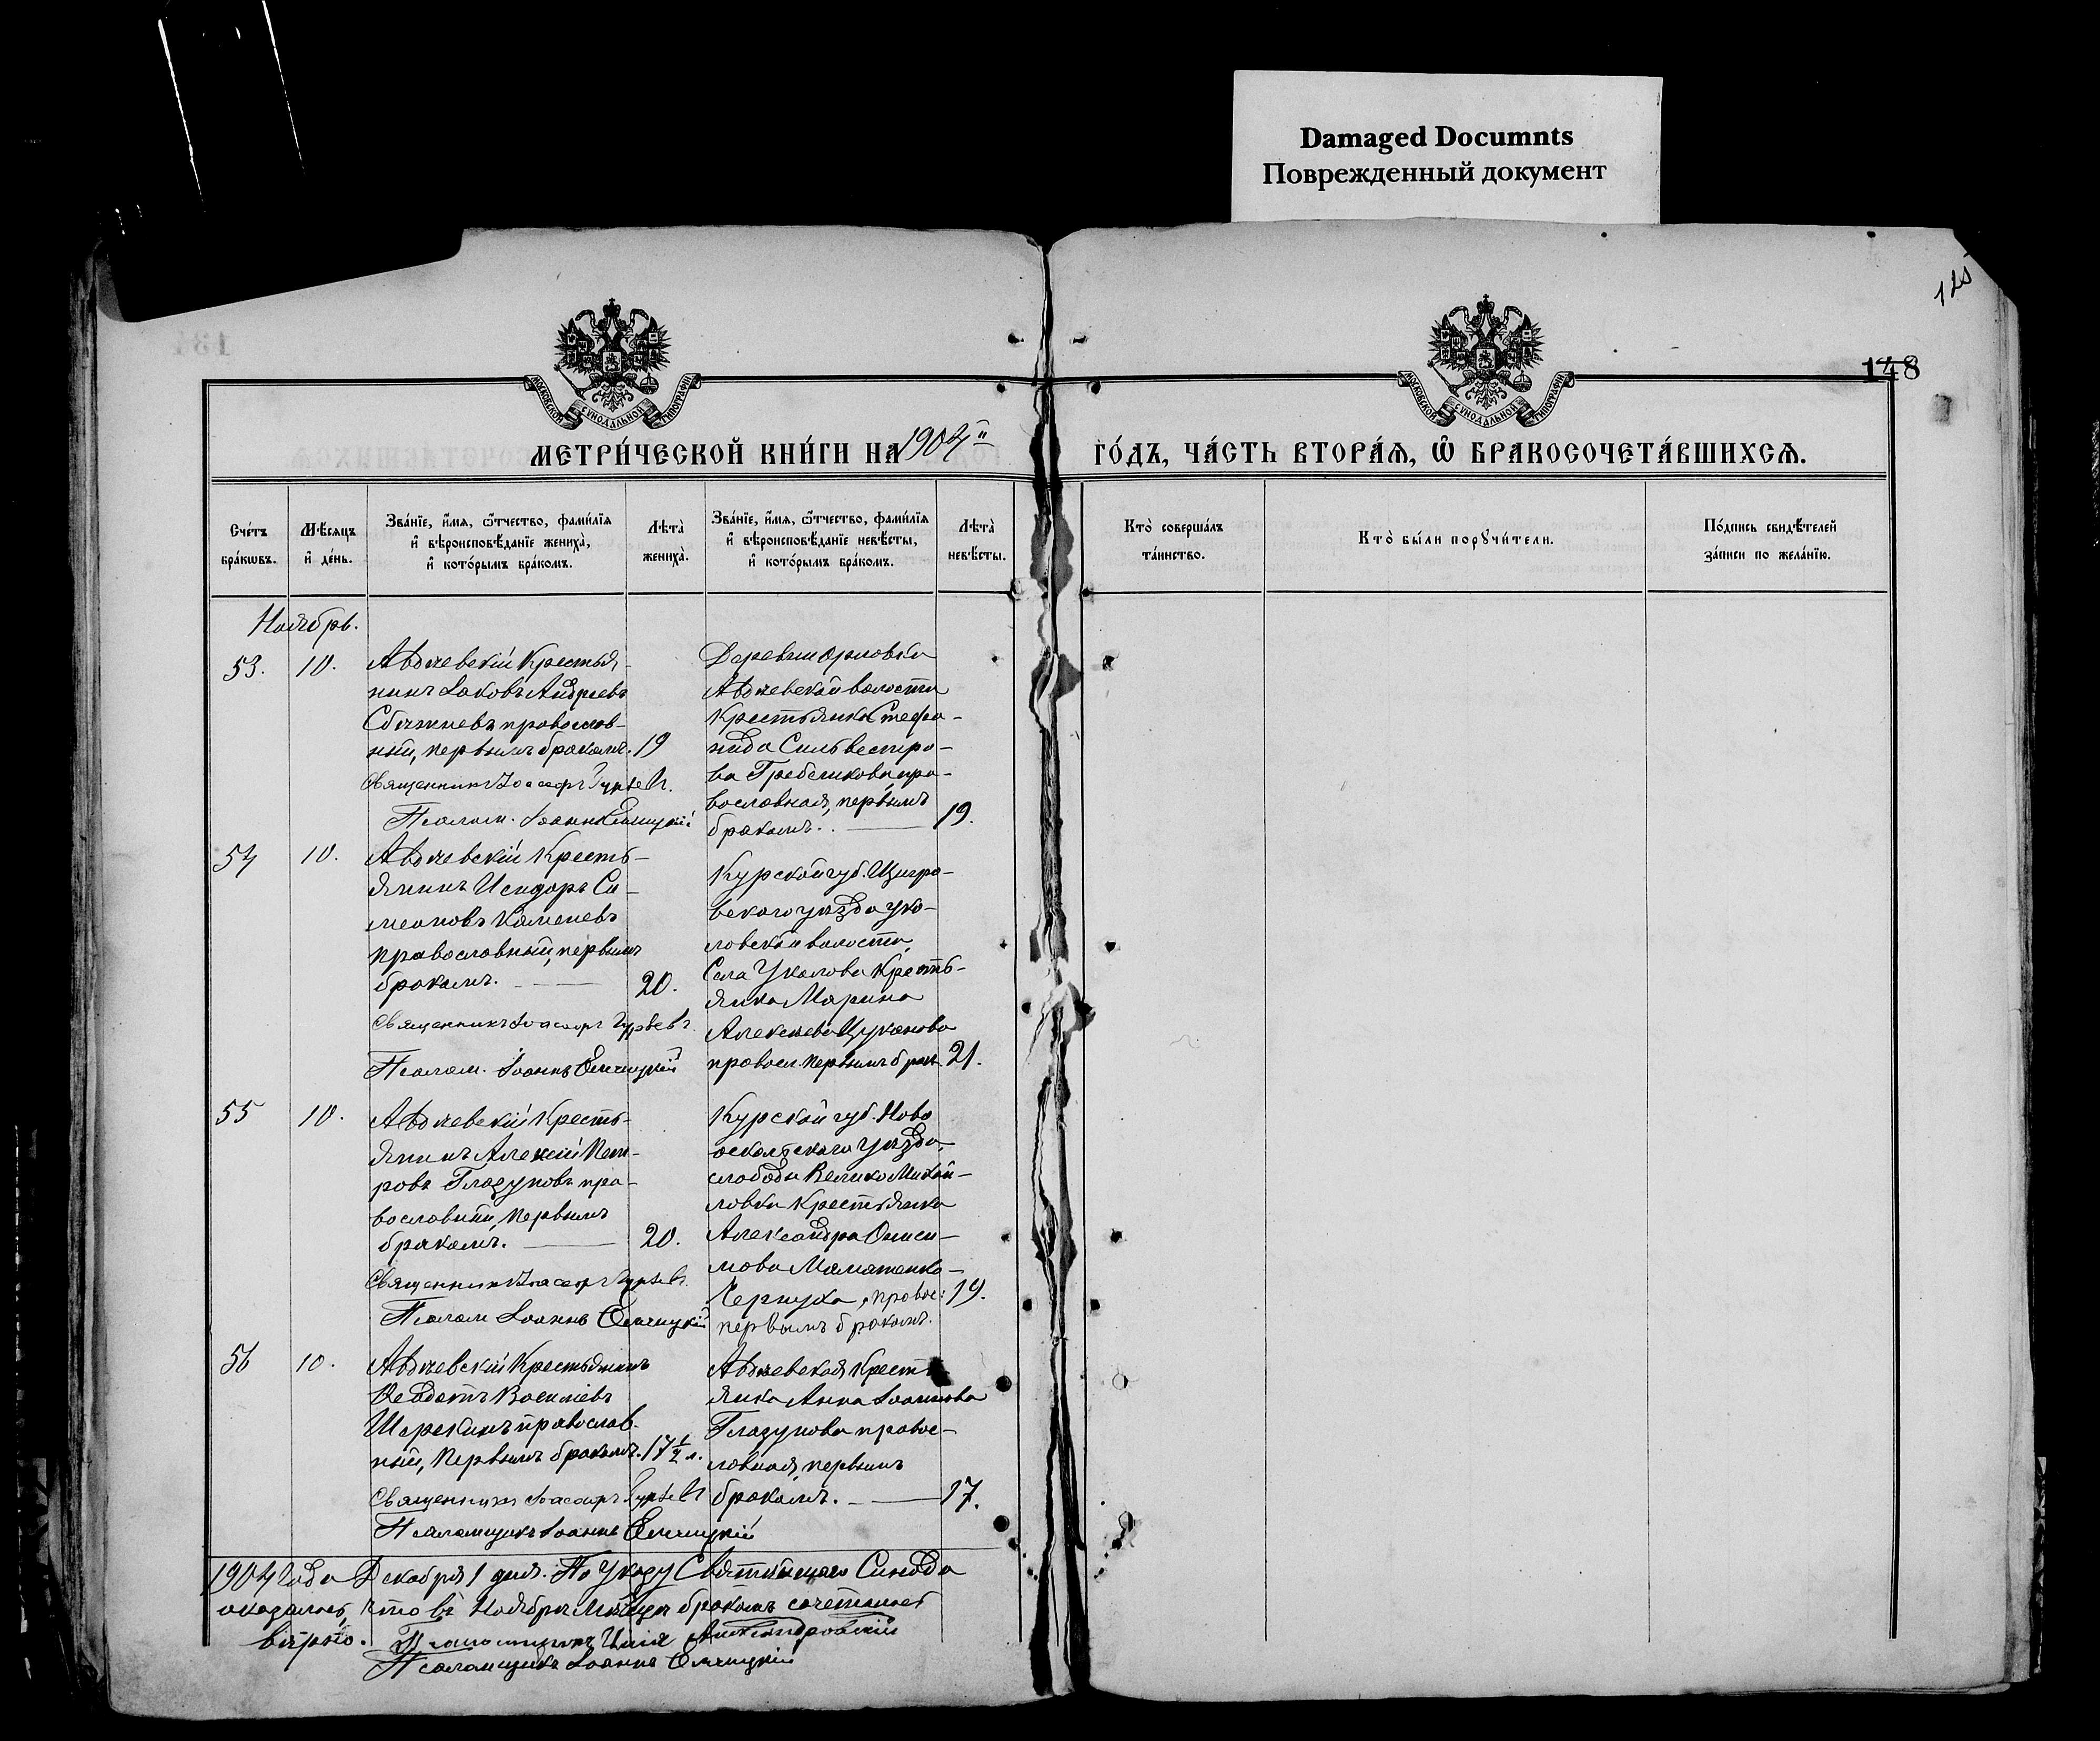 Damaged Documnts
Поврежденный документ
125
148
МОСКОВСКОЙ СУНОДАЛЬНОЙ ТИПОГРАФІИ
МОСКОВСКОЙ СУНОДАЛЬНОЙ ТИПОГРАФІИ
МЕТРИ́ЧЕСКОЙ КНИ́ГИ НА 1904й
ГО́ДЪ, ЧА́СТЬ ВТОРА́Ѧ, Ѽ БРАКОСОЧЕТА́ВШИХСѦ.
Сче́тъ бра́кѡвъ.
Мѣ́сяцъ и҆ де́нь.
Зва́нїе, и҆́мѧ, ѻ҆́тчество, фами́лїѧ и҆ вѣроисповѣ́данїе жениха̀, и҆ кото́рымъ бра́комъ.
Лѣта̀ жениха̀.
Зва́нїе, и҆́мѧ, ѻ҆́тчество, фами́лїѧ и҆ вѣроисповѣ́данїе невѣ́сты, и҆ кото́рымъ бра́комъ.
Лѣта̀ невѣ́сты.
Кто̀ соверша́лъ та́инство.
Кто̀ бы́ли порꙋчи́тели.
По́дпись свидѣ́телей за́писи по жела́нїю.
Ноябрь.
53.
10.
Авдѣевскій Крестья-
нинъ Іаковъ Андреевъ
православ-
ный, первымъ бракомъ. 19
Священникъ Іоасафъ Гурьевъ.
Псалом. Іоаннъ
Деревни Орловки
Авдѣевской волости
Крестьянка Стефа-
нида Сильвестро-
ва Гребенникова, пра-
вославная, первымъ
бракомъ. 19.
54
10.
Авдѣевскій Кресть-
янинъ Исидоръ Си-
меоновъ Каменевъ
православный, первымъ
бракомъ. 20.
Священникъ Іоасафъ Гурьевъ.
Псалом. Іоаннъ
Курской губ. Щигро-
вскаго уѣзда Уко-
ловской волости,
Села Уколова Кресть-
янка Марина
Алексѣева Цуканова
правосл. первымъ брак. 21.
55
10.
Авдѣевскій Кресть-
янинъ Алексій Пет-
ровъ Глазуновъ пра-
вославный, первымъ
бракомъ. 20.
Священникъ Іоасафъ Гурьевъ.
Псалом Іоаннъ
Курской губ. Ново
оскольскаго уѣзда,
слободы Велико Михай-
ловки Крестьянка
АлександраОниси-
мова
Чернуха, правос: 19.
первымъ бракомъ.
56
10.
Авдѣевскій Крестьянинъ
Ѳеодотъ Василіевъ
Шерекинъ православ.
ный, первымъ бракомъ. 17½ л.
Священникъ Іоасафъ Гурьевъ
Псаломщикъ Іоаннъ
Авдѣевская Кресть
янка Анна Іоаннова
Глазунова правос-
лавная, первымъ
бракомъ. 17.
1904 года Декабря 1 дня. По Указу Святѣйшаго Синода
оказалось, что въ Ноябрѣ Мѣсяцѣ бракомъ сочеталось
вѣрно. Илія Александровскій
Псаломщикъ Іоаннъ